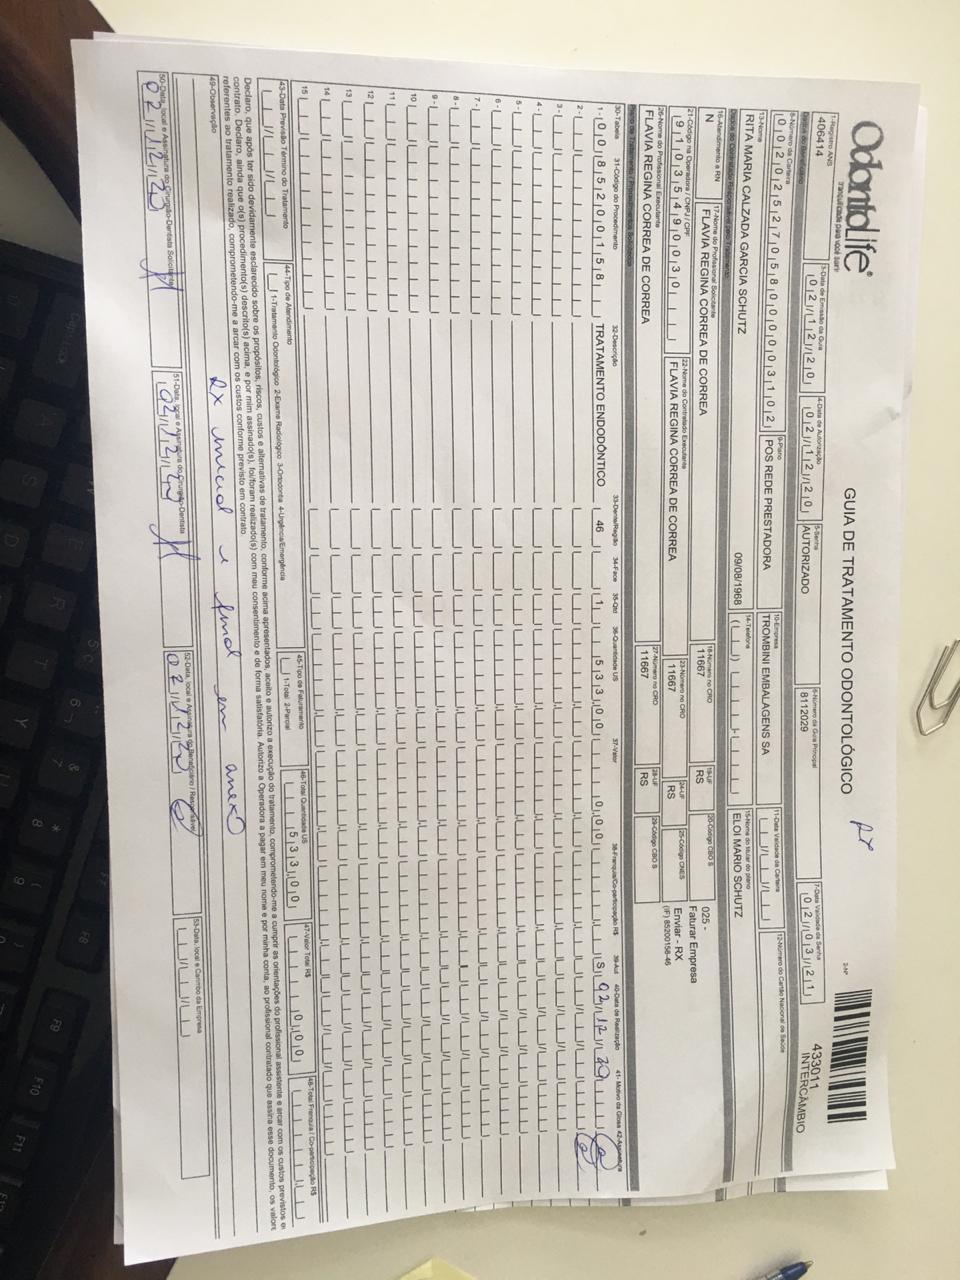 OdontoLife®
tranquilidade para você sorrir
GUIA DE TRATAMENTO ODONTOLÓGICO
RX
2-Nº
433011
INTERCÂMBIO
1-Registro ANS
406414
3-Data de Emissão da Guia
02/12/20
4-Data de Autorização
02/12/20
5-Senha
AUTORIZADO
6-Número da Guia Principal
8112029
7-Data Validade da Senha
02/03/21
8-Número da Carteira
00202527058000003102
9-Plano
POS REDE PRESTADORA
10-Empresa
TROMBINI EMBALAGENS SA
11-Data Validade da Carteira
12-Número do Cartão Nacional de Saúde
13-Nome
RITA MARIA CALZADA GARCIA SCHUTZ
09/08/1968
14-Telefone
15-Nome do titular do plano
ELOI MARIO SCHUTZ
16-Atendimento a RN
N
17-Nome do Profissional Solicitante
FLAVIA REGINA CORREA DE CORREA
18-Número no CRO
11667
19-UF
RS
20-Código CBO S
025 -
Faturar Empresa
Enviar - RX
(IF) 85200158-46
21-Código na Operadora / CNPJ / CPF
91035490030
22-Nome do Contratado Executante
FLAVIA REGINA CORREA DE CORREA
23-Número no CRO
11667
24-UF
RS
25-Código CNES
26-Nome do Profissional Executante
FLAVIA REGINA CORREA DE CORREA
27-Número no CRO
11667
28-UF
RS
29-Código CBO S
30-Tabela 31-Código do Procedimento 32-Descrição 33-Dente/Região 34-Face 35-Qtd 36-Quantidade US 37-Valor 38-Franquia/Co-participação R$ 39-Aut 40-Data de Realização 41- Motivo da Glosa 42-Assinatura
1- 00 85200158 TRATAMENTO ENDODÔNTICO 46 1 533,00 0,00 S 02/12/20
2-
3-
4-
5-
6-
7-
8-
9-
10
11
12
13
14
15
43-Data Previsão Término do Tratamento
44-Tipo de Atendimento
1-Tratamento Odontológico 2-Exame Radiológico 3-Ortodontia 4-Urgência/Emergência
45-Tipo de Faturamento
1-Total 2-Parcial
46-Total Quantidade US
533,00
47-Valor Total R$
0,00
48-Total Franquia / Co-participação R$
Declaro, que após ter sido devidamente esclarecido sobre os propósitos, riscos, custos e alternativas de tratamento, conforme acima apresentados, aceito e autorizo a execução do tratamento, comprometendo-me a cumprir as orientações do profissional assistente e arcar com os custos previstos em
contrato. Declaro, ainda que o(s) procedimento(s) descrito(s) acima, e por mim assinado(s), foi/foram realizado(s) com meu consentimento e de forma satisfatória. Autorizo a Operadora a pagar em meu nome e por minha conta, ao profissional contratado que assina esse documento, os valores
referentes ao tratamento realizado, comprometendo-me a arcar com os custos conforme previsto em contrato.
49-Observação
RX inicial e final em anexo
50-Data, local e Assinatura do Cirurgião-Dentista Solicitante
02/12/20
51-Data, local e Assinatura do Cirurgião-Dentista
02/12/20
52-Data, local e Assinatura do Beneficiário / Responsável
02/12/20
53-Data, local e Carimbo da Empresa